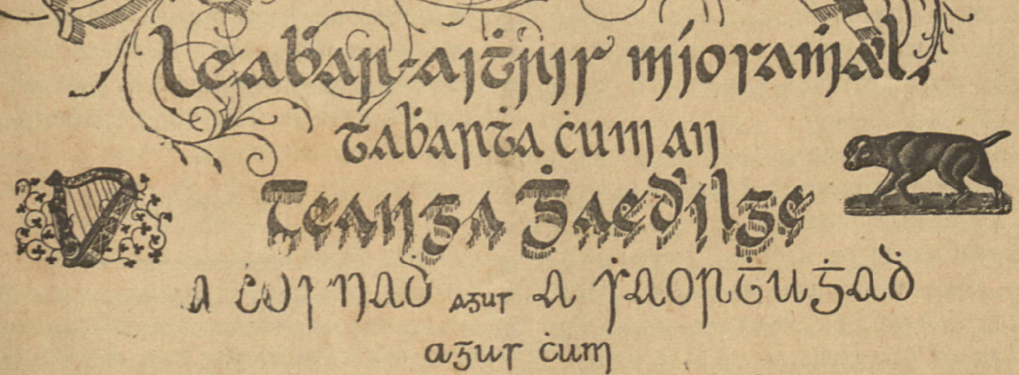 Leaḃar-aiṫiris míosaṁail,
taḃarṫa ċum an
Teanga Ġaeḋilge
a ċosnaḋ agus a ṡaorṫuġaḋ
agus ċum